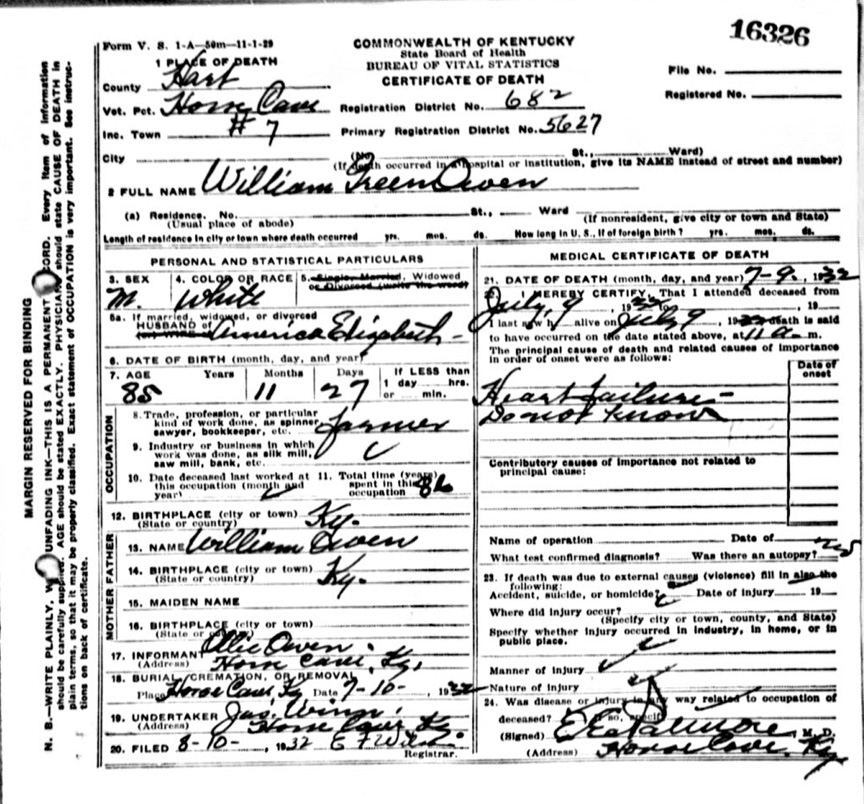 16326
Form V. S. 1-A—50m—11-1-29
COMMONWEALTH OF KENTUCKY
State Board of Health
BUREAU OF VITAL STATISTICS
CERTIFICATE OF DEATH
File No.
Registered No.
1 PLACE OF DEATH
County Hart
Vot. Pct. Horse Cave Registration District No. 682
Inc. Town # 7 Primary Registration District No. 5627
City (No. St., Ward)
(If death occurred in a hospital or institution, give its NAME instead of street and number)
2 FULL NAME William Green Owen
(a) Residence. No. St., Ward
(Usual place of abode) (If nonresident, give city or town and State)
Length of residence in city or town where death occurred yrs. mos. ds. How long in U. S., if of foreign birth? yrs. mos. ds.
PERSONAL AND STATISTICAL PARTICULARS
3. SEX 4. COLOR OR RACE 5. Single, Married, Widowed
or Divorced (write the word)
M. White
5a. If married, widowed, or divorced
HUSBAND of America Elizabeth
6. DATE OF BIRTH (month, day, and year)
7. AGE Years Months Days If LESS than
1 day hrs.
or min.
85 11 27
OCCUPATION
8. Trade, profession, or particular
kind of work done, as spinner
sawyer, bookkeeper, etc. farmer
9. Industry or business in which
work was done, as silk mill,
saw mill, bank, etc.
10. Date deceased last worked at
this occupation (month and
year)
11. Total time (years)
spent in this
occupation
12. BIRTHPLACE (city or town) Ky.
(State or country)
FATHER
13. NAME William Owen
14. BIRTHPLACE (city or town) Ky.
(State or country)
MOTHER
15. MAIDEN NAME
16. BIRTHPLACE (city or town)
(State or country)
17. INFORMANT Ollie Owen
(Address) Horse Cave, Ky.
18. BURIAL, CREMATION, OR REMOVAL
Place Horse Cave Ky Date 7-10- 1932
19. UNDERTAKER Jas. Winn
(Address) Horse Cave, Ky.
20. FILED 8-10- 1932 E F
Registrar.
MEDICAL CERTIFICATE OF DEATH
21. DATE OF DEATH (month, day, and year) 7-9. 1932
22. I HEREBY CERTIFY, That I attended deceased from
July, 9 1932 to 19
I last saw h alive on July 9 19 death is said
to have occurred on the date stated above, at 11 a. m.
The principal cause of death and related causes of importance
in order of onset were as follows:
Date of
onset
Heart failure-
Do not know
Contributory causes of importance not related to
principal cause:
Name of operation Date of
What test confirmed diagnosis? Was there an autopsy? no
23. If death was due to external causes (violence) fill in also the
following:
Accident, suicide, or homicide? Date of injury 19
Where did injury occur?
(Specify city or town, county, and State)
Specify whether injury occurred in industry, in home, or in
public place.
Manner of injury
Nature of injury
24. Was disease or injury in any way related to occupation of
deceased? If so, specify
(Signed) M. D.
(Address) Horse Cave, Ky
MARGIN RESERVED FOR BINDING
N. B.—WRITE PLAINLY, UNFADING INK—THIS IS A PERMANENT Every item of information
should be carefully supplied. AGE should be stated EXACTLY. PHYSICIANS should state CAUSE OF DEATH in
plain terms, so that it may be properly classified. Exact statement of OCCUPATION is very important. See instruc-
tions on back of certificate.